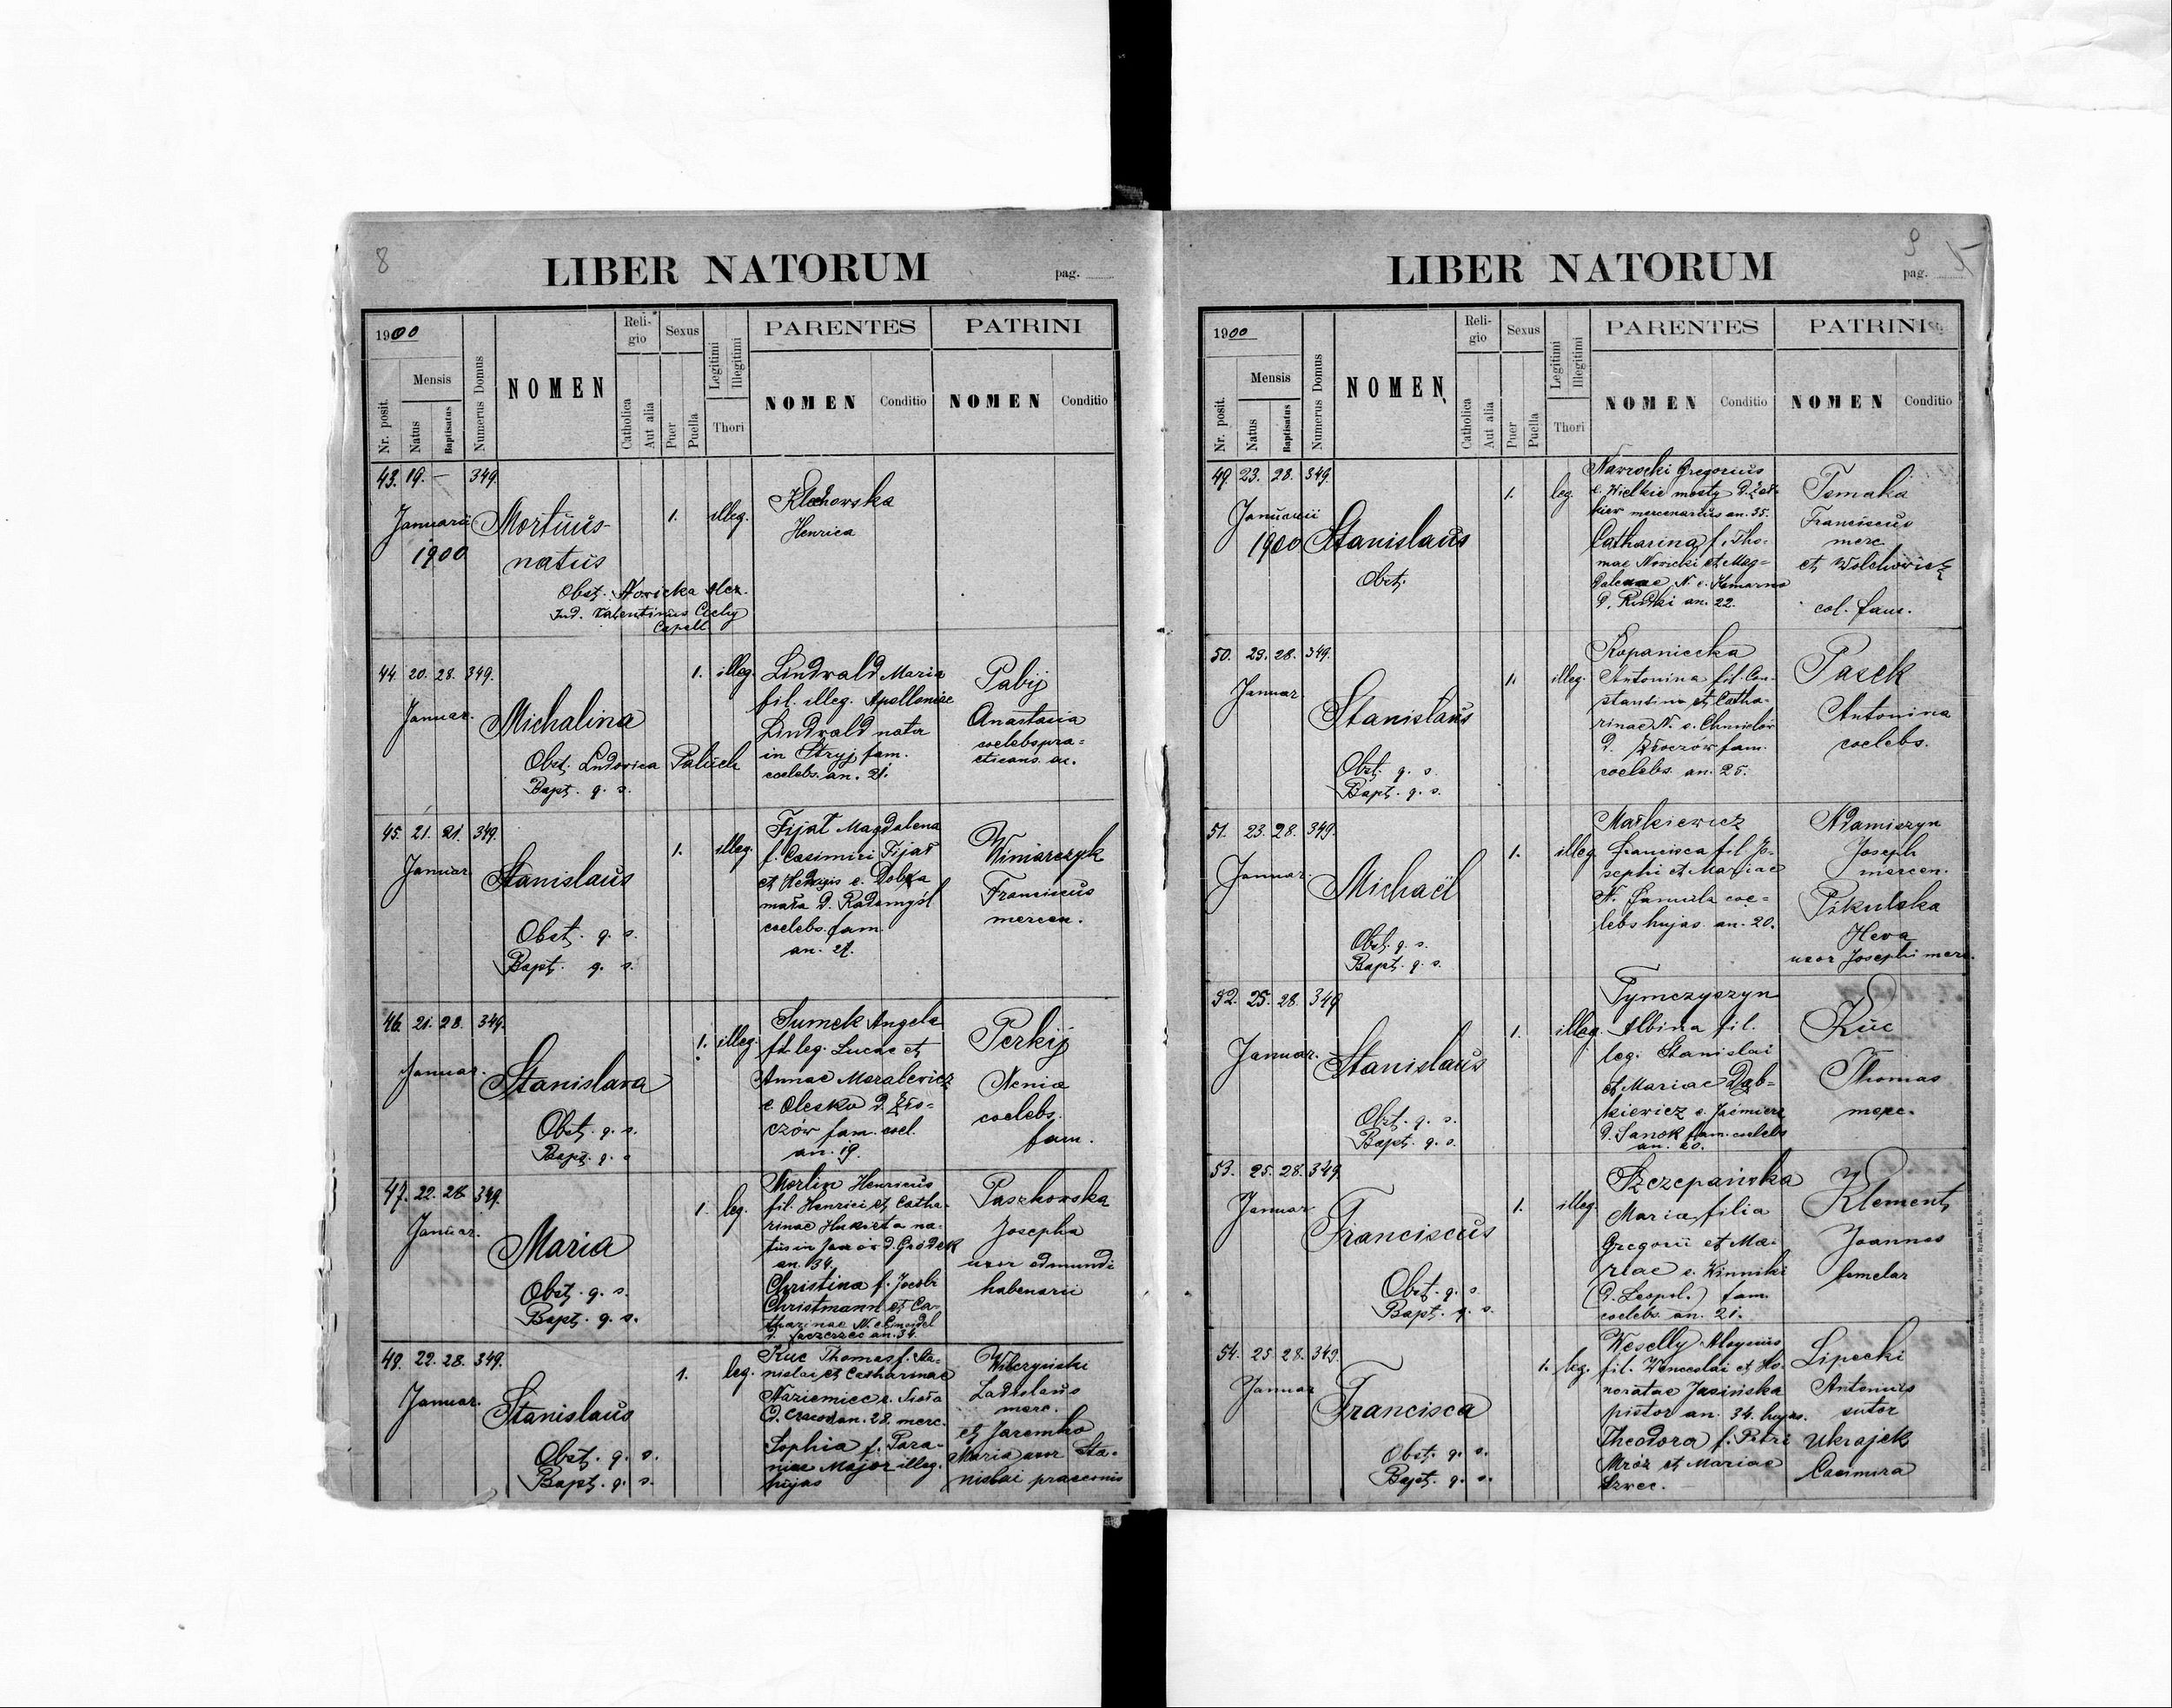 8
LIBER NATORUM
pag.
1900
Mensis
Nr. posit.
Natus
Baptisatus
Numerus Domus
NOMEN
Religio
Catholica
Aut alia
Sexus
Puer
Puella
Legitimi
Illegitimi
Thori
PARENTES
NOMEN
Conditio
PATRINI
NOMEN
Conditio
43. 19. — 349.
Januarii
1900
Mortuus-
natus
1.
illeg.
Klechowska
Henrica
Obst. Nowicka Alex.
Ind. Valentinus Cichy
Capell
44 20. 28. 349.
Januar.
Michalina
Obst. Ludovica Paluch
Bapt. q. s.
1.
illeg.
Lindwald Maria
fil. illeg. Apolloniae
Lindwald nata
in Stryj fam.
coelebs. an. 21.
Pabij
Anastasia
coelebs pra-
cticans.
45. 21. 21. 349.
Januar
Stanislaus
Obst. q. s.
Bapt. q. s.
1.
illeg.
Fijał Magdalena
f. Casimiri Fijał
et Hedvigis
D. Radomyśl
coelebs. fam.
an.
Winiarczyk
Franciscus
mercen.
46. 21. 28. 349.
Januar.
Stanislava
Obst. q. s.
Bapt. q. s
1.
illeg.
Sumek Angela
fil. leg. Lucae et
Annae Moralewicz
e Olesko D. Zło-
czów fam. coel.
an. 19.
Perkij
Xenia
coelebs.
fam.
47. 22. 28. 349.
Januar.
Maria
Obst. q. s.
Bapt. q. s.
1.
leg.
Merlin Henricus
fil. Henrici et Catha-
rinae na-
tus in Janów d. Gródek
an. 34.
Christina f. Jacobi
Christmann et Ca-
tharinae N.
an. 34.
Paszkowska
Josepha
uxor Edmundi
habenarii
48. 22. 28. 349.
Januar.
Stanislaus
Obst. q. s.
Bapt. q. s.
1.
leg.
Kuc Thomas f. Sta-
nislai et Catharinae
Naziemiec e.
an. 28. merc.
Sophia f. Para-
niae Major illeg.
hujas
Wilczyński
Ladislaus
merc.
et Jaremko
Maria uxor Sta-
nislai praeconis
9
LIBER NATORUM
pag.
1900
Mensis
Nr. posit.
Natus
Baptisatus
Numerus Domus
NOMEN
Religio
Catholica
Aut alia
Sexus
Puer
Puella
Legitimi
Illegitimi
Thori
PARENTES
NOMEN
Conditio
PATRINI
NOMEN
Conditio
49. 23. 28. 349.
Januarii
1900
Stanislaus
Obst.
1.
leg.
Nawrocki Gregorius
e. Wielkie mosty D. Żół-
kiew mercenarius an. 35.
Catharina f. Tho-
mae Nowicki et Mag-
dalenae N. e. Komarno
D. Rudki an. 22.
Tomaka
Franciscus
merc
et Wolchowicz
col. fam.
50. 23. 28. 349.
Januar.
Stanislaus
Obst. q. s.
Bapt. q. s.
1.
illeg.
Kopaniecka
Antonina fil. Con-
stantini et Catha-
rinae N. e. Chmielów
D. Złoczów fam.
coelebs. an. 25.
Pasek
Antonina
coelebs.
51. 23. 28. 349.
Januar.
Michaël
Obst. q. s.
Bapt. q. s.
1.
illeg
Małkiewicz
Francisca fil. Jo-
sephi et Mariae
N. famula coe-
lebs hujas. an. 20.
Adamiszyn
Joseph
mercen.
Pikulska
Heva
uxor Josephi merc.
52. 25. 28. 349
Januar.
Stanislaus
Obst. q. s.
Bapt. q. s.
1.
illeg.
Tymczyszyn
Albina fil.
leg. Stanislai
et Mariae Dąb-
kiewicz e. Jaćmierz
D. Sanok fam. coelebs
an. 20.
Kuc
Thomas
merc.
53. 25. 28. 349.
Januar.
Franciscus
Obst. q. s.
Bapt. q. s.
1.
illeg.
Szczepańska
Maria filia
Gregorii et Ma-
riae e. Winniki
(D. Leopol.) fam.
coelebs. an. 21.
Klement
Joannes
famelar
54. 25 28. 349.
Januar
Francisca
Obst. q. s.
Bapt. q. s.
1.
leg.
Weselly Aloysius
fil. Venceslai et Ho-
noratae Jasińska
pistor an. 34. hujas.
Theodora f. Petri
Mróz et Mariae
Szwec.
Lipecki
Antonius
sutor
Ukrajek
Casimira